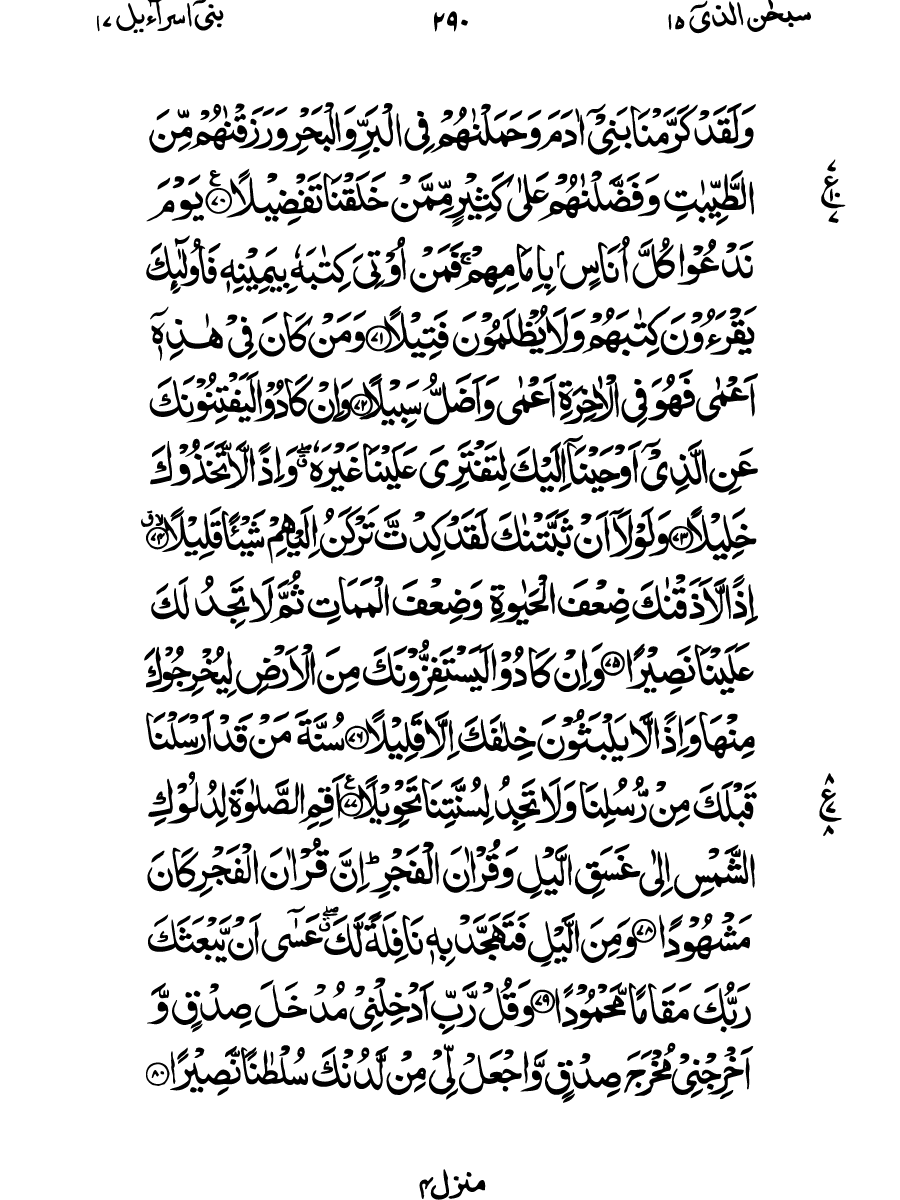 سبحٰن الذیٓ ۱۵
۲۹۰
بنیٓ اسرآءیل ۱۷
وَلَقَدْ كَرَّمْنَا بَنِيْٓ اٰدَمَ وَحَمَلْنٰهُمْ فِي الْبَرِّ وَالْبَحْرِ وَرَزَقْنٰهُمْ مِّنَ
الطَّيِّبٰتِ وَفَضَّلْنٰهُمْ عَلٰى كَثِيْرٍ مِّمَّنْ خَلَقْنَا تَفْضِيْلًا ۧ۷۰ يَوْمَ
نَدْعُوْا كُلَّ اُنَاسٍۢ بِاِمَامِهِمْ ۚ فَمَنْ اُوْتِيَ كِتٰبَهٗ بِيَمِيْنِهٖ فَاُولٰٓئِكَ
يَقْرَءُوْنَ كِتٰبَهُمْ وَلَا يُظْلَمُوْنَ فَتِيْلًا ۷۱ وَمَنْ كَانَ فِيْ هٰذِهٖٓ
اَعْمٰى فَهُوَ فِي الْاٰخِرَةِ اَعْمٰى وَاَضَلُّ سَبِيْلًا ۷۲ وَاِنْ كَادُوْا لَيَفْتِنُوْنَكَ
عَنِ الَّذِيْٓ اَوْحَيْنَآ اِلَيْكَ لِتَفْتَرِيَ عَلَيْنَا غَيْرَهٗ ۖۗ وَاِذًا لَّاتَّخَذُوْكَ
خَلِيْلًا ۷۳ وَلَوْلَآ اَنْ ثَبَّتْنٰكَ لَقَدْ كِدْتَّ تَرْكَنُ اِلَيْهِمْ شَيْـًٔا قَلِيْلًا ۷۴ۙق
اِذًا لَّاَذَقْنٰكَ ضِعْفَ الْحَيٰوةِ وَضِعْفَ الْمَمَاتِ ثُمَّ لَا تَجِدُ لَكَ
عَلَيْنَا نَصِيْرًا ۷۵ وَاِنْ كَادُوْا لَيَسْتَفِزُّوْنَكَ مِنَ الْاَرْضِ لِيُخْرِجُوْكَ
مِنْهَا وَاِذًا لَّا يَلْبَثُوْنَ خِلٰفَكَ اِلَّا قَلِيْلًا ۷۶ سُنَّةَ مَنْ قَدْ اَرْسَلْنَا
قَبْلَكَ مِنْ رُّسُلِنَا وَلَا تَجِدُ لِسُنَّتِنَا تَحْوِيْلًا ۧ۷۷ اَقِمِ الصَّلٰوةَ لِدُلُوْكِ
الشَّمْسِ اِلٰى غَسَقِ الَّيْلِ وَقُرْاٰنَ الْفَجْرِ ۭ اِنَّ قُرْاٰنَ الْفَجْرِ كَانَ
مَشْهُوْدًا ۷۸ وَمِنَ الَّيْلِ فَتَهَجَّدْ بِهٖ نَافِلَةً لَّكَ ۖۗ عَسٰٓى اَنْ يَّبْعَثَكَ
رَبُّكَ مَقَامًا مَّحْمُوْدًا ۷۹ وَقُلْ رَّبِّ اَدْخِلْنِيْ مُدْخَلَ صِدْقٍ وَّ
اَخْرِجْنِيْ مُخْرَجَ صِدْقٍ وَّاجْعَلْ لِّيْ مِنْ لَّدُنْكَ سُلْطٰنًا نَّصِيْرًا ۸۰
۷ ع ۱۰ ۷
۸ ع ۷ ۸
منزل ۴